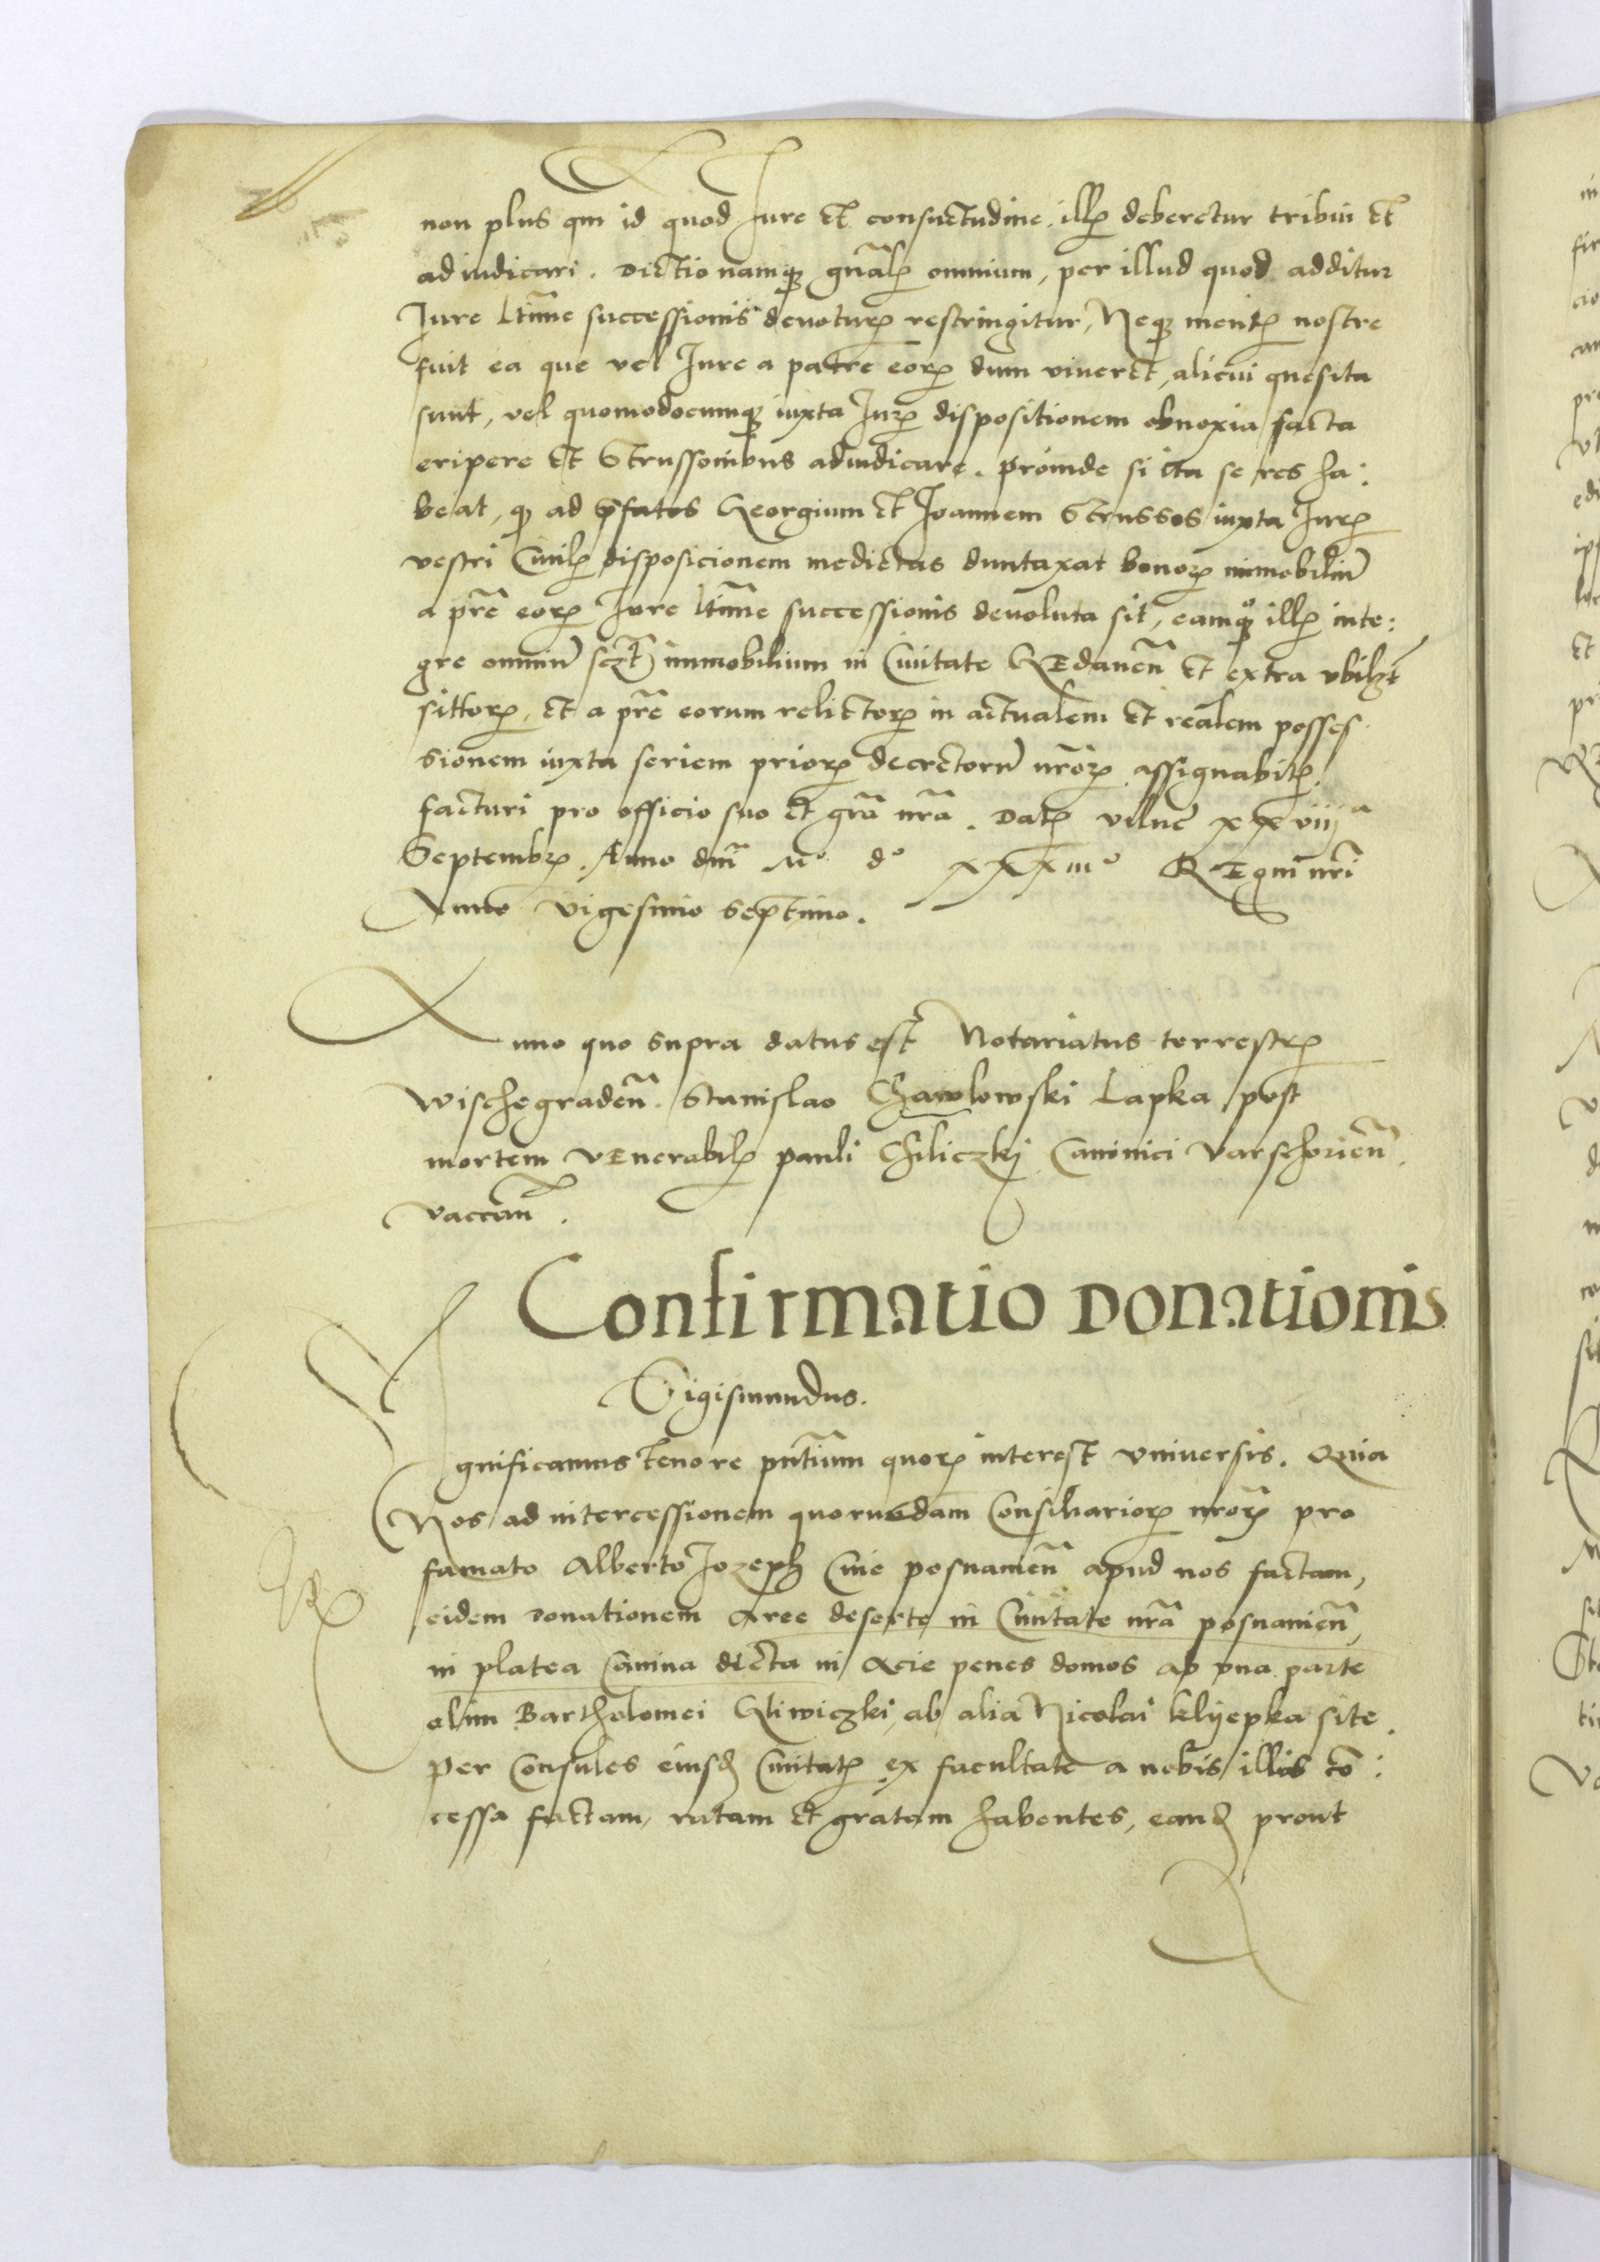 non plus qm id quod Jure et consuetudine illꝭ deberetur tribui et
adiudicari. Dictio namqꝫ gn̄alꝭ omnium, per illud quod additur
Jure ltīme successionis devoturꝭ restringitur, Neqꝫ mentꝭ nostre
fuit ea que vel Jure a patre eorꝭ dum viveret, alicui quesita
sunt, vel quomodocumqꝫ iuxta Jurꝭ dispositionem obnoxia facta
eripere et Strussonibus adiudicare. Proinde si ita se res ha:
beat, qꝫ ad p̄fatos Georgium et Joannem Strussos iuxta Jurꝭ
vestri Civilꝭ disposicionem medietas duntaxat bonorꝭ immobiliū
a pr̄e eorꝭ Jure ltīme successionis devoluta sit, eamqꝫ illꝭ inte:
gre omniū sczt immobilium in Civitate GEdaneñ et extra vbilꝫt
sittorꝭ, et a pr̄e eorum relictorꝭ in actualem et realem posses
sionem iuxta seriem priorꝭ decretorū nr̄orꝭ assignabitꝭ.
facturi pro officio suo et gr̄a nr̄a. Datꝭ vilne xxviijᵃ
Septembrꝭ. Anno dn̄i Mº dº xxxiiiº REgni nr̄i
Anno vigesimo septimo.
Anno quo supra datus est Notariatus terrestrꝭ
Wischegradeñ. Stanislao Chawlowski Lapka post
mortem VEnerabilꝭ pauli Chiliczkij Canonici Varschovieñ.
vaccan̄.
Confirmatio Donationis
Sigismundus.
gnificamus tenore pn̄tium quorꝭ interest vniversis. Quia
Nos ad intercessionem quorundam Consiliariorꝭ nr̄orꝭ pro
famato Alberto Jozeph Cive posnanieñ apud nos factam,
eidem Donationem Aree deserte in Civitate nr̄a posnanieñ,
in platea Canina dicta in Acie penes domos ab vna parte
olim Bartholomei Gliwiczki, ab alia Nicolai klijepka site.
per Consules eiusd Civitatꝭ ex facultate a nobis illis cō:
cessa factam, ratam et gratam habentes, eand prout